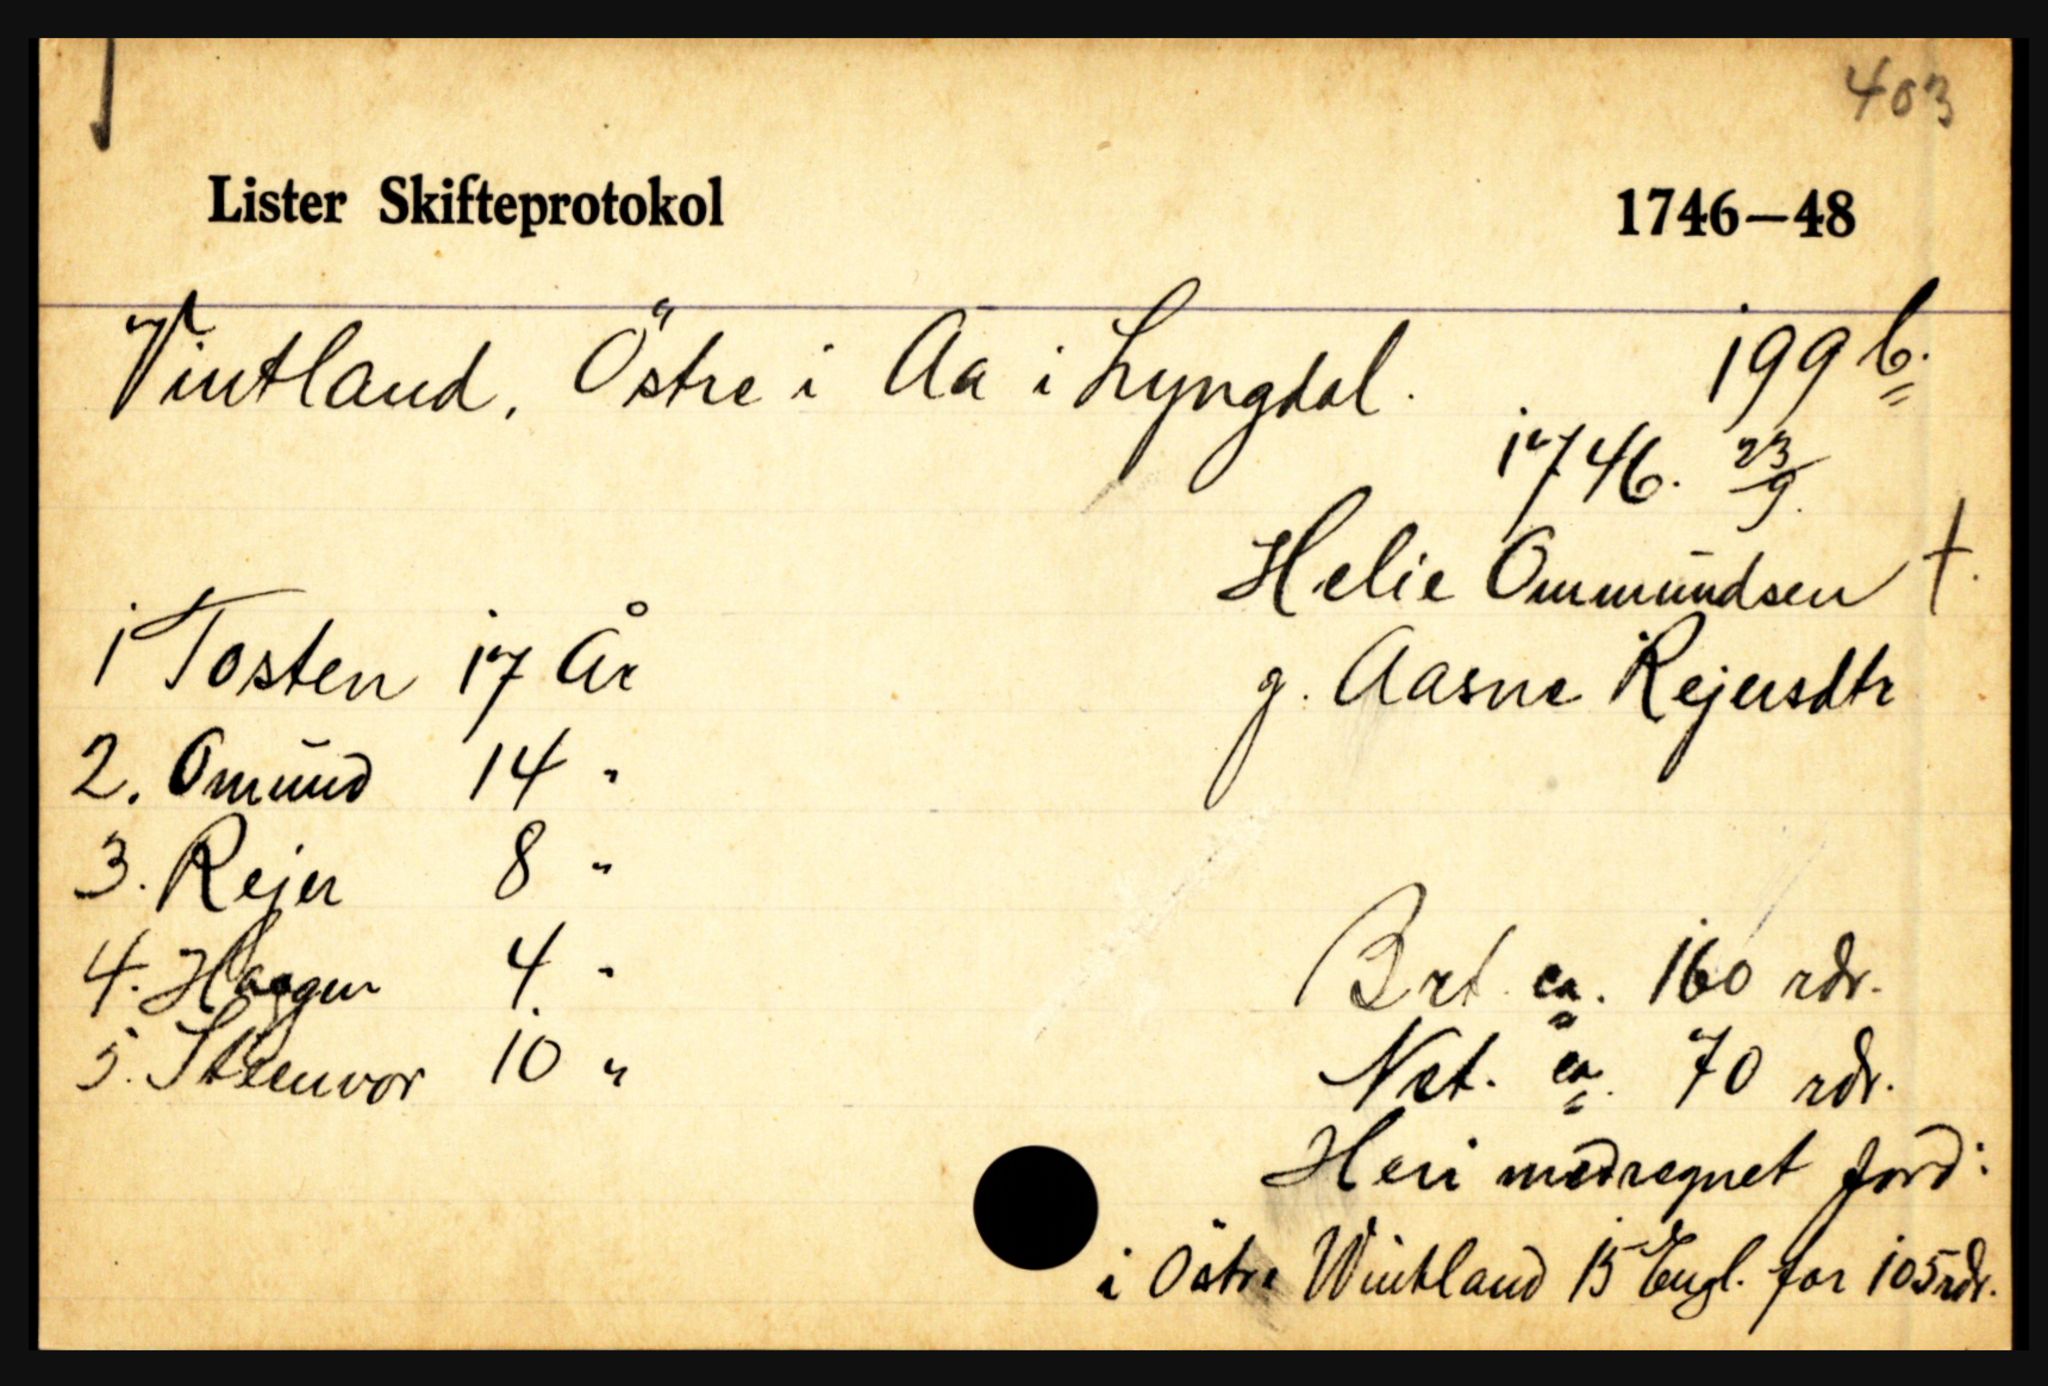 403
Lister Skifteprotokol 1746–48
Vintland, Östre i Aa i Lyngdal. 199 b.
1746. 23/9.
Helie Ommundsen †.
g. Aasne Rejersdtr
1 Tosten 17 År
2. Omund 14 "
3. Rejer 8 "
4. Haagen 4 "
5. Steenvor 10 "
Brt. ca. 160 rdr.
Net. ca. 70 rdr.
Heri medregnet jord:
i Östre Wintland 15 Engl. for 105 rdr.